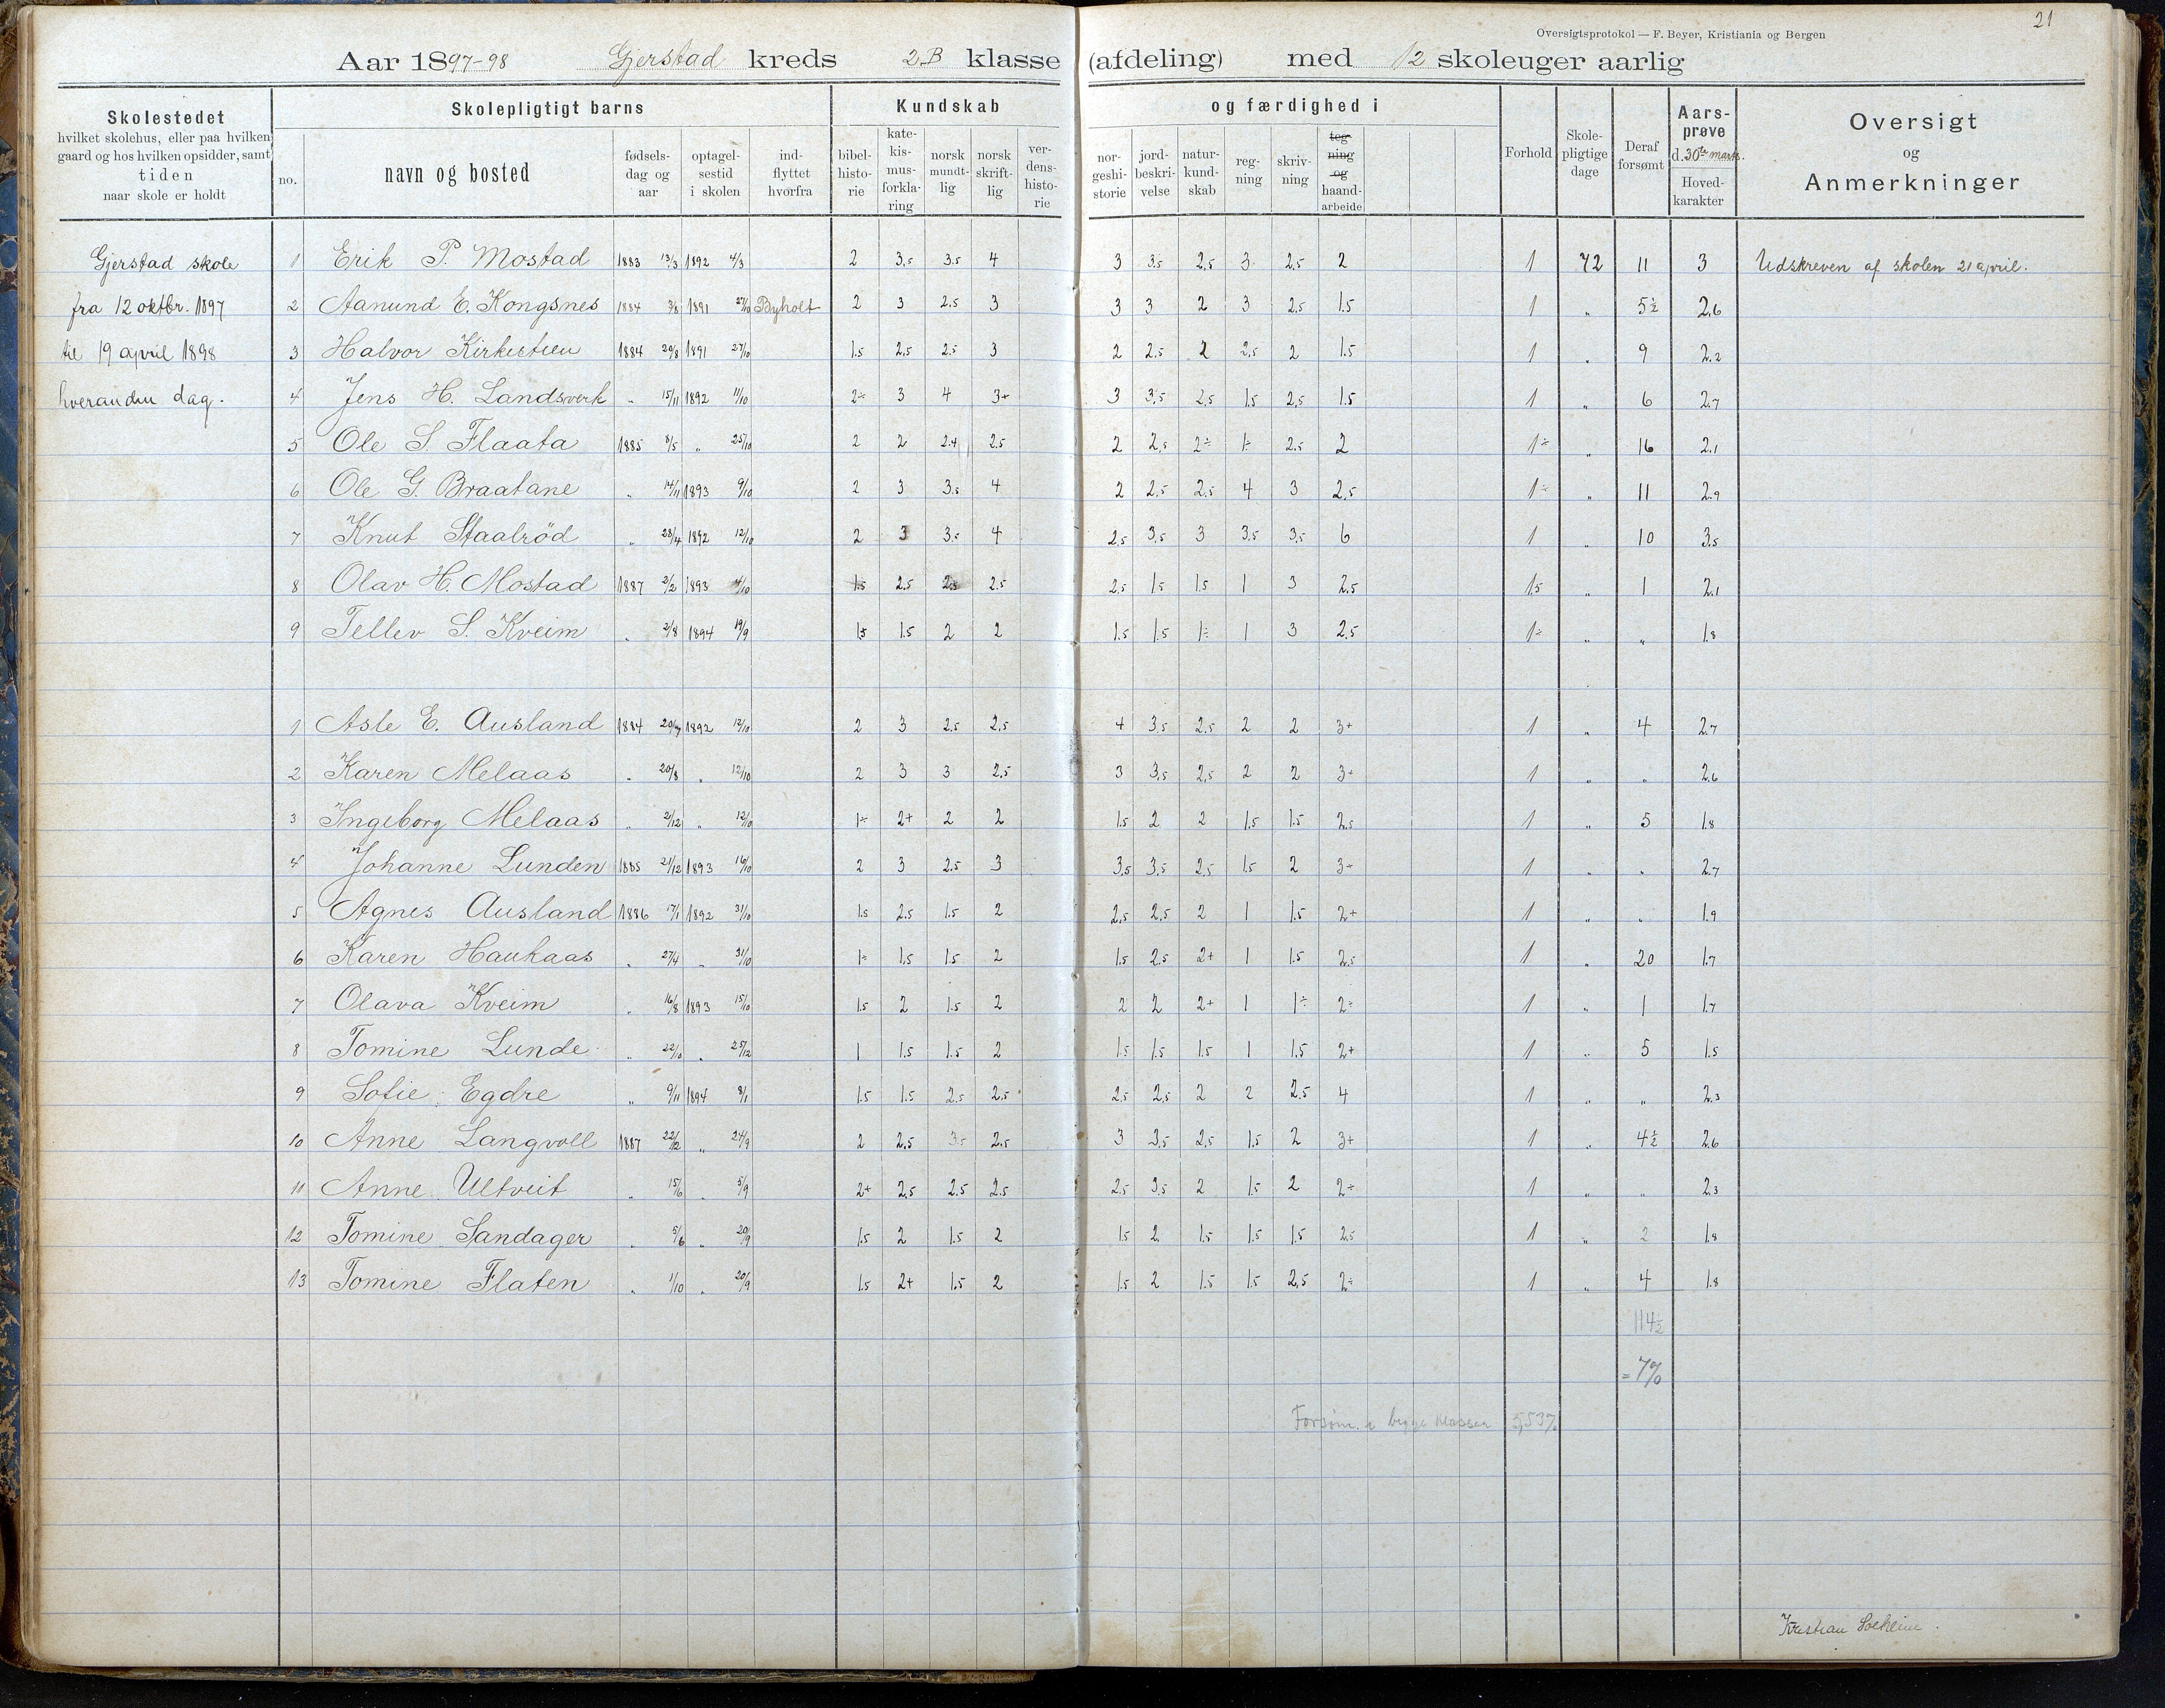 21
Oversigtsprotokol — F. Beyer, Kristiania og Bergen
Aar 1897-98 Gjerstad kreds 2B klasse (afdeling) med 12 skoleuger aarlig
Skolestedet hvilket skolehus, eller paa hvilken gaard og hos hvilken opsidder, samt tiden naar skole er holdt
Skolepligtigt barns
no. navn og bosted fødsels-dag og aar optagel-sestid i skolen ind-flyttet hvorfra
Kundskab og færdighed i
bibel-histo-rie kate-kis-mus-forkla-ring norsk mundt-lig norsk skrift-lig ver-dens-histo-rie nor-geshi-storie jord-beskri-velse natur-kund-skab reg-ning skriv-ning teg-ning og haand-arbeide
Forhold Skole-pligtige dage Deraf forsømt Aars-prøve d. 30te marts. Hoved-karakter
Oversigt og Anmerkninger
Gjerstad skole 1 Erik P. Mostad 1883 13/3 1892 4/3 2 3,5 3.5 4 3 3,5 2,5 3 2,5 2 1 72 11 3 Udskreven af skolen 21 april.
fra 12 oktbr. 1897 2 Aanund E. Kongsnes 1884 3/8 1891 27/10 Byholt 2 3 2.5 3 3 3 2 3 2,5 1.5 1 " 5½ 2,6
til 19 april 1898 3 Halvor Kirkestien 1884 29/8 1891 27/10 1.5 2,5 2.5 3 2 2.5 2 2,5 2 1.5 1 " 9 2.2
hveranden dag. 4 Jens H. Landsverk " 15/11 1892 11/10 2÷ 3 4 3+ 3 3,5 2,5 1.5 2,5 1.5 1 " 6 2.7
5 Ole S. Flaata 1885 8/5 " 25/10 2 2 2.4 2.5 2 2,5 2÷ 1÷ 2.5 2 1÷ " 16 2.1
6 Ole G. Braatane " 14/11 1893 9/10 2 3 3.5 4 2 2.5 2.5 4 3 2,5 1÷ " 11 2.9
7 Knut Staalrød " 28/4 1892 12/10 2 3 3.5 4 2,5 3,5 3 3,5 3,5 6 1 " 10 3.5
8 Olav H. Mostad 1887 2/2 1893 4/10 1.5 2.5 2.5 2.5 2,5 1.5 1.5 1 3 2.5 1.5 " 1 2.1
9 Tellev S. Kveim " 2/8 1894 19/9 1.5 1.5 2 2 1.5 1.5 1÷ 1 3 2.5 1÷ " " 1.8
1 Asle E. Ausland 1884 20/7 1892 12/10 2 3 2.5 2,5 4 3,5 2.5 2 2 3+ 1 " 4 2.7
2 Karen Melaas " 20/8 " 12/10 2 3 3 2.5 3 3,5 2,5 2 2 3÷ 1 " " 2.6
3 Ingeborg Melaas " 2/12 " 12/10 1÷ 2+ 2 2 1.5 2 2 1.5 1.5 2.5 1 " 5 1.8
4 Johanne Lunden 1885 21/12 1893 16/10 2 3 2.5 3 3,5 3,5 2,5 1.5 2 3÷ 1 " " 2.7
5 Agnes Ausland 1886 17/1 1892 31/10 1.5 2.5 1.5 2 2,5 2,5 2 1 1.5 2+ 1 " " 1.9
6 Karen Haukaas " 27/4 " 31/10 1÷ 1.5 1.5 2 1.5 2.5 2+ 1 1.5 2.5 1 " 20 1.7
7 Olava Kveim " 16/8 1893 15/10 1.5 2 1.5 2 2 2 2+ 1 1÷ 2÷ 1 " 1 1.7
8 Tomine Lunde " 22/10 " 25/12 1 1.5 1.5 2 1.5 1.5 1.5 1 1.5 2+ 1 " 5 1.5
9 Sofie Egdre " 9/11 1894 8/1 1.5 1.5 2.5 2.5 2,5 2,5 2 2 2.5 4 1 " " 2.3
10 Anne Langvoll 1887 22/12 " 24/9 2 2,5 3.5 2.5 3 3,5 2,5 1.5 2 3+ 1 " 4½ 2.6
11 Anne Ultveit " 15/6 " 5/9 2+ 2,5 2.5 2.5 2.5 3,5 2 1.5 2 2÷ 1 " " 2.3
12 Tomine Sandager " 5/6 " 20/9 1.5 2 1.5 2 1.5 2 1.5 1.5 1.5 2.5 1 " 2 1.8
13 Tomine Flaten " 1/10 " 20/9 1.5 2+ 1.5 2 1.5 2 1.5 1.5 2,5 2÷ 1 " 4 1.8
114½
= 7%
Forsøm. i begge klasser 5,53%
Kristian Solheim.